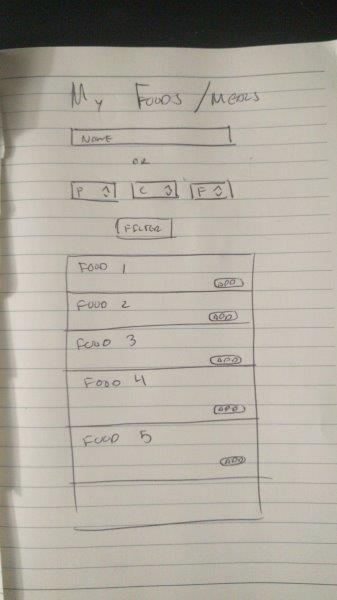 My Foods/Meals
Name
or
P C F
Filter
Food 1
Add
Food 2
Add
Food 3
Add
Food 4
Add
Food 5
Add